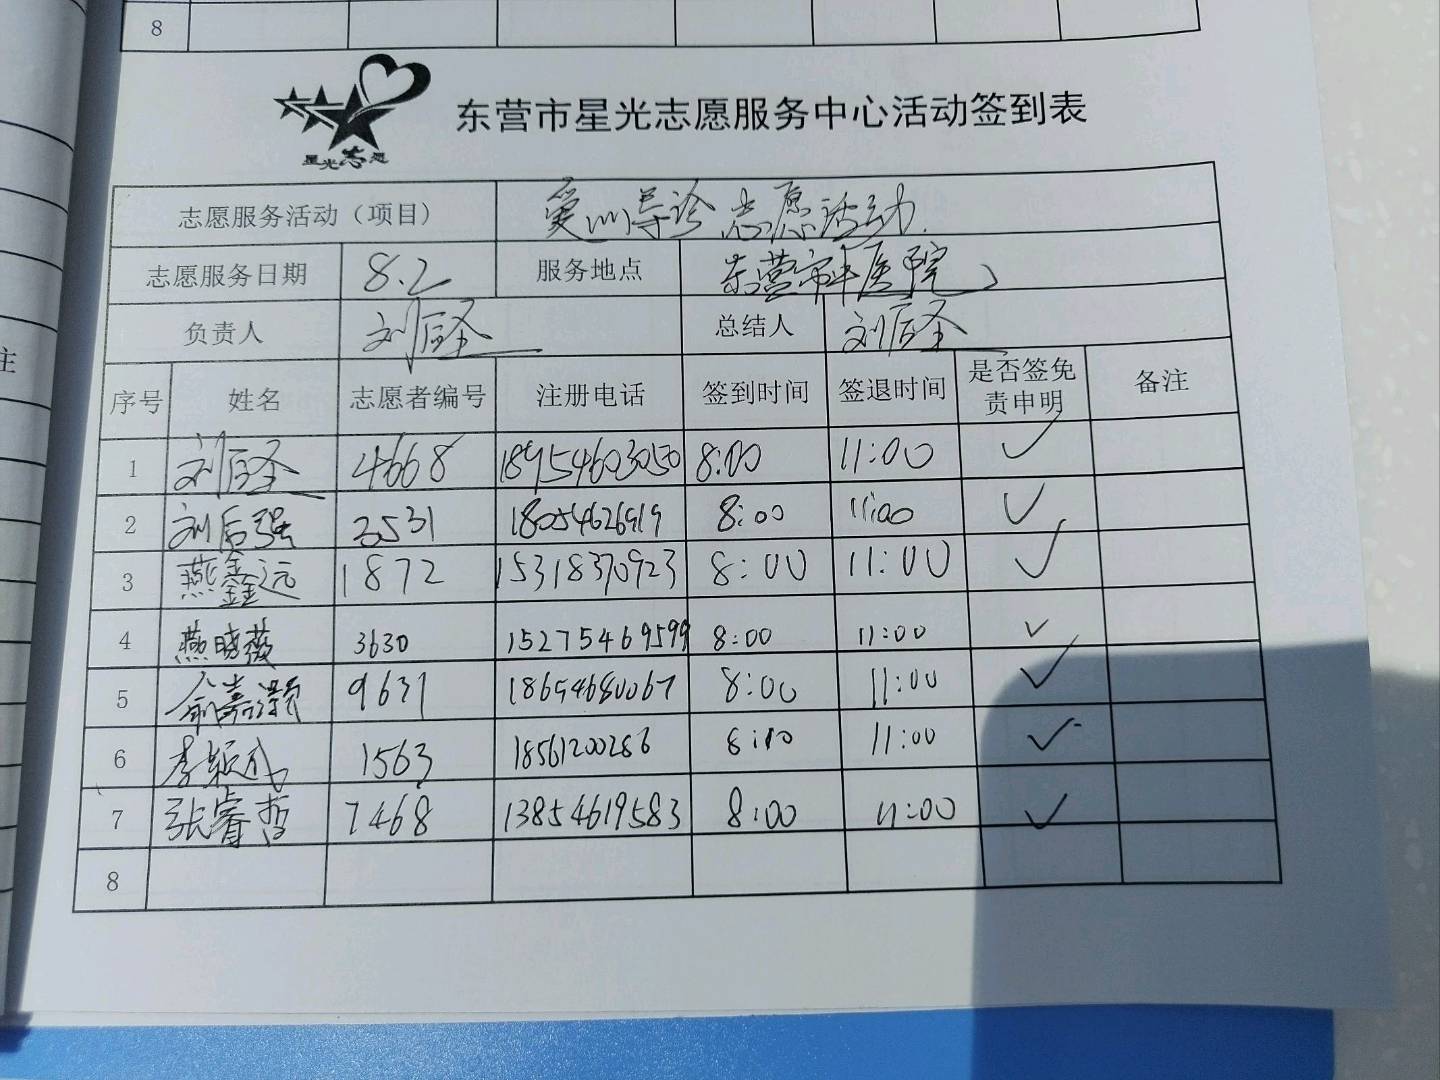 8
星光志愿
东营市星光志愿服务中心活动签到表
志愿服务活动（项目） 爱心导诊志愿活动
志愿服务日期 8.2 服务地点 东营市 医院
负责人 刘后圣 总结人 刘后圣
序号 姓名 志愿者编号 注册电话 签到时间 签退时间 是否签免责申明 备注
主
1 刘后圣 4668 18954603050 8:00 11:00 ✓
2 刘后强 3531 18054626919 8:00 11:00 ✓
3 燕鑫远 1872 15318370923 8:00 11:00 ✓
4 燕晓薇 3630 15275469599 8:00 11:00 ✓
5 俞嘉灏 9631 18654680067 8:00 11:00 ✓
6 李颖 1563 18561200286 8:10 11:00 ✓
7 张睿哲 7468 13854619583 8:00 11:00 ✓
8